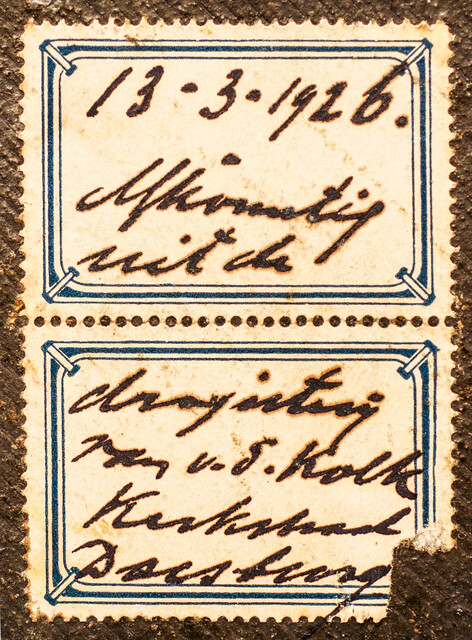 13-3-1926.
Afkomstig
uit de
drogisterij
van v.d. Kolk
Kerkstraat
Doesburg